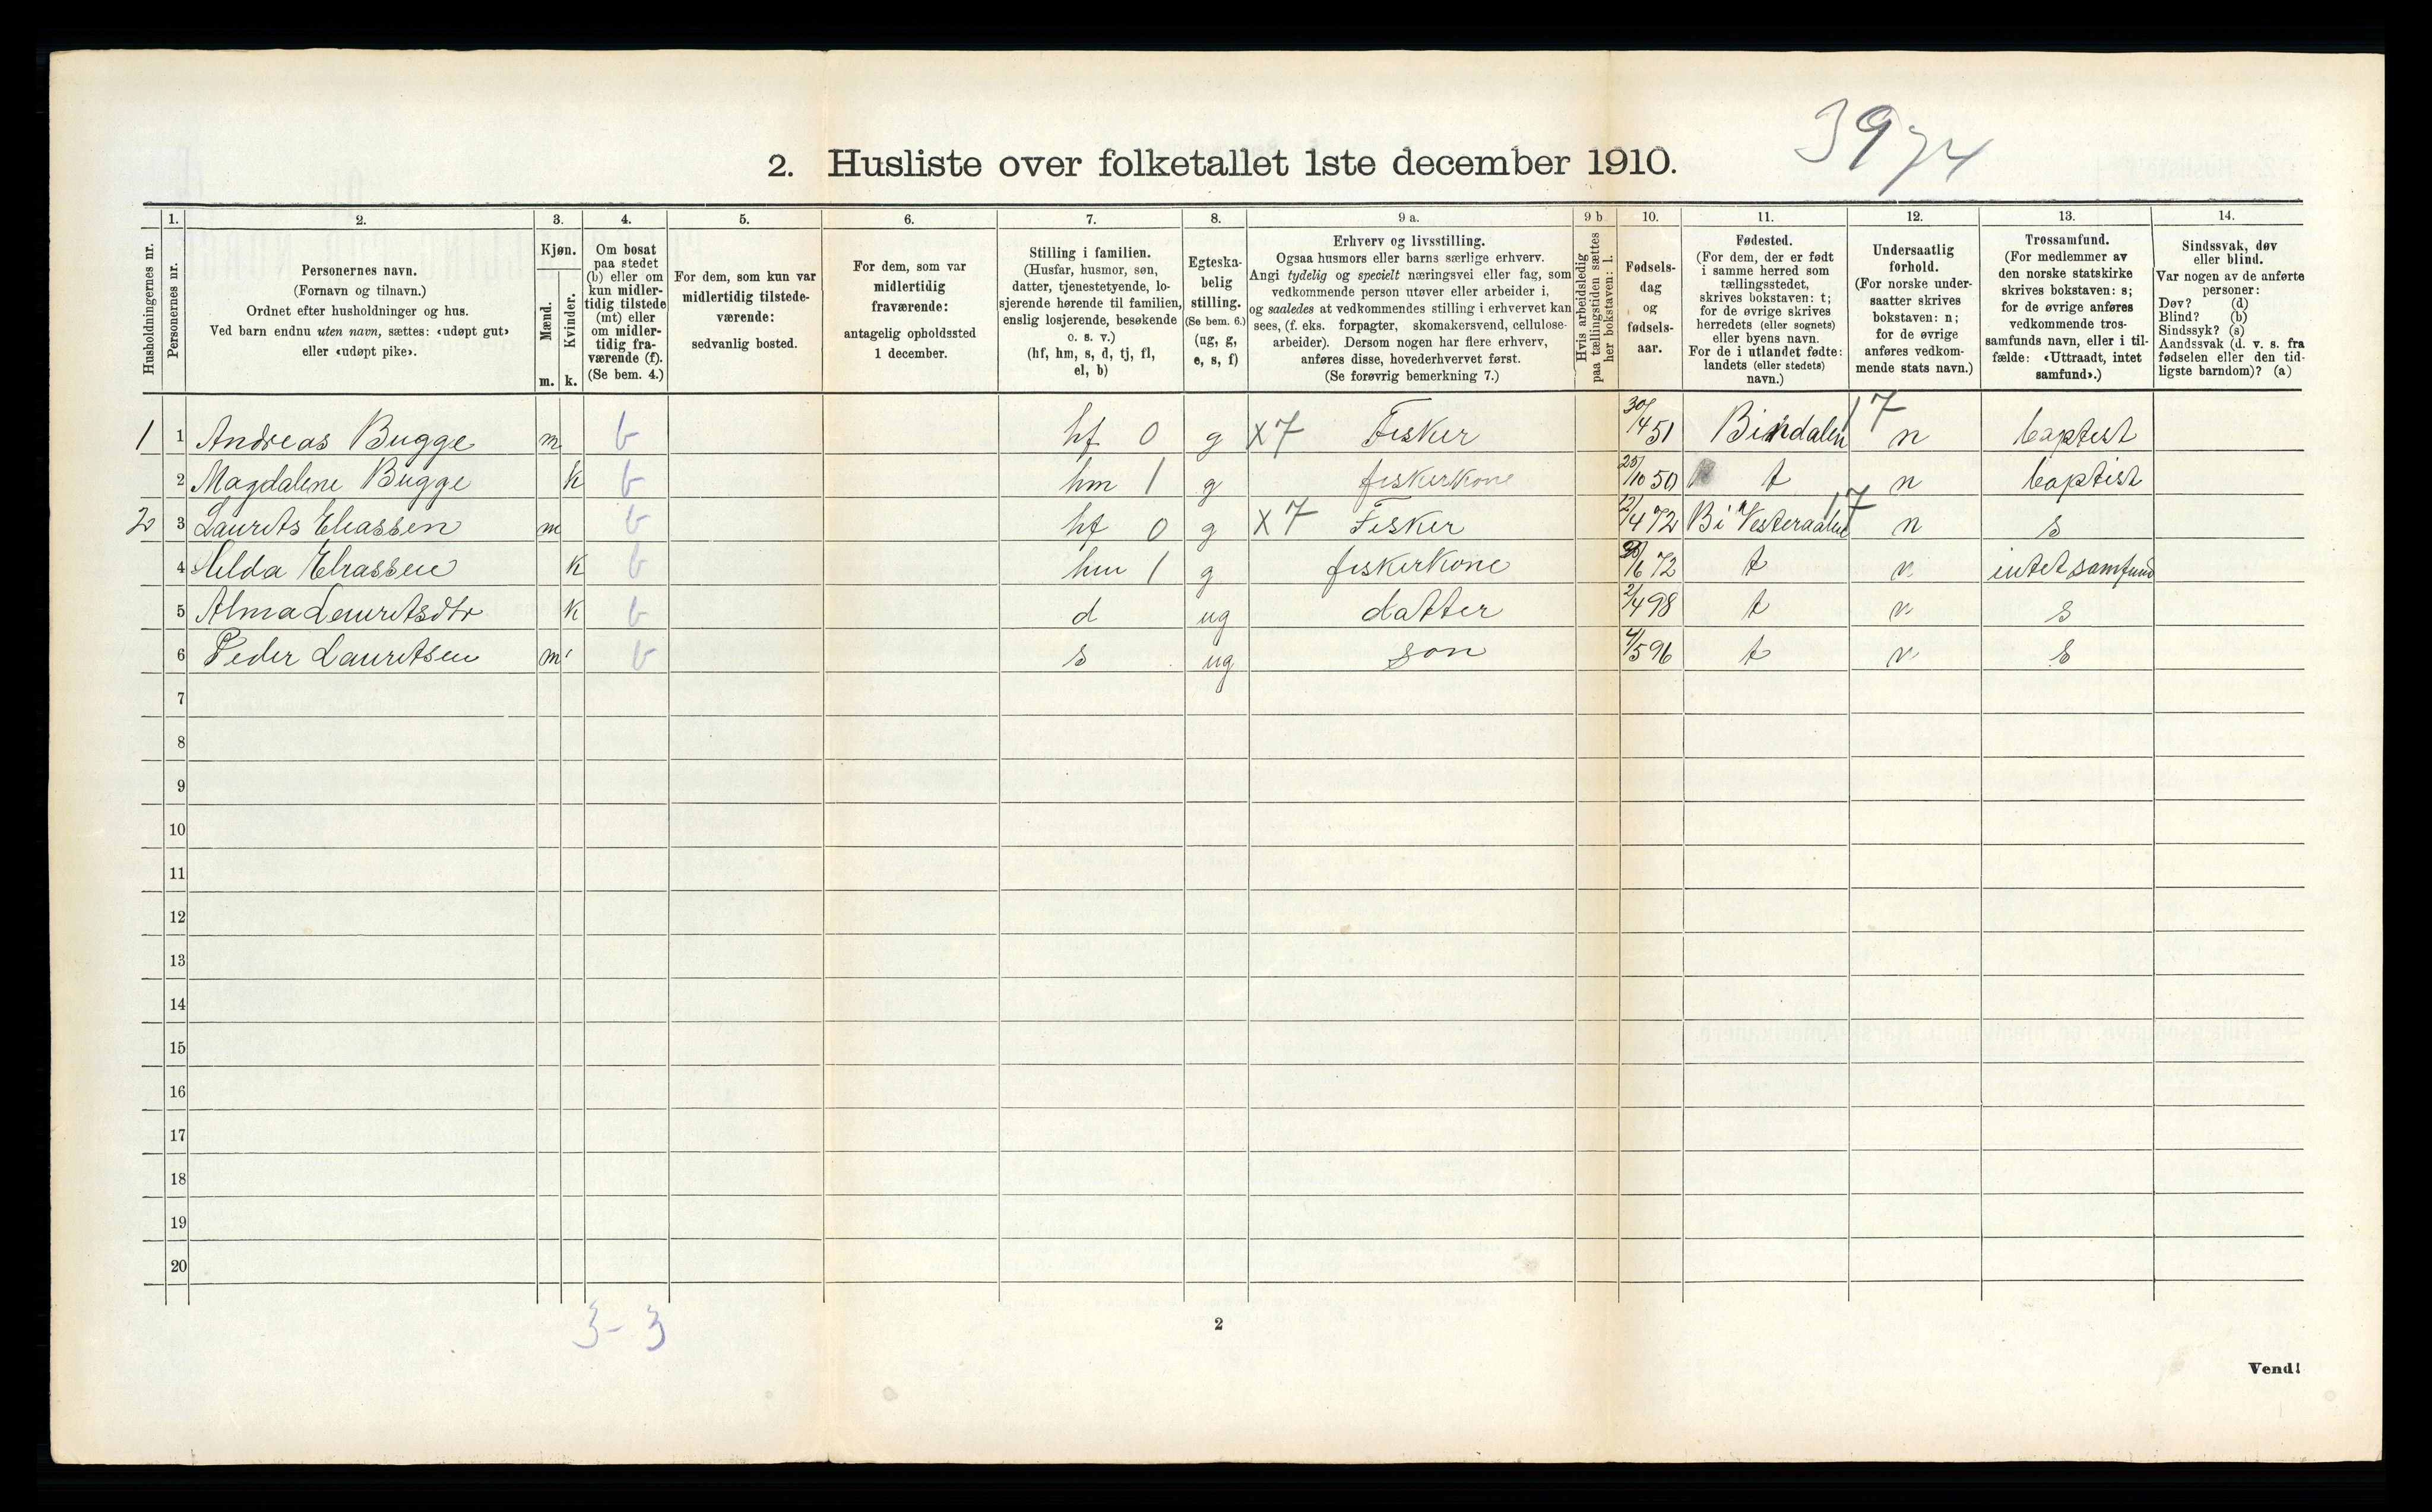 3974
2. Husliste over folketallet 1ste december 1910.
Husholdningernes nr.
1.
Personernes nr.
2.
Personernes navn.
(Fornavn og tilnavn.)
Ordnet efter husholdninger og hus.
Ved barn endnu uten navn, sættes: «udøpt gut»
eller «udøpt pike».
3.
Kjøn.
Mænd.
Kvinder.
m.
k.
4.
Om bosat
paa stedet
(b) eller om
kun midler-
tidig tilstede
(mt) eller
om midler-
tidig fra-
værende (f).
(Se bem. 4.)
5.
For dem, som kun var
midlertidig tilstede-
værende:
sedvanlig bosted.
6.
For dem, som var
midlertidig
fraværende:
antagelig opholdssted
1 december.
7.
Stilling i familien.
(Husfar, husmor, søn,
datter, tjenestetyende, lo-
sjerende hørende til familien,
enslig losjerende, besøkende
o. s. v.)
(hf, hm, s, d, tj, fl,
el, b)
8.
Egteska-
belig
stilling.
(Se bem. 6.)
(ug, g,
e, s, f)
9 a.
Erhverv og livsstilling.
Ogsaa husmors eller barns særlige erhverv.
Angi tydelig og specielt næringsvei eller fag, som
vedkommende person utøver eller arbeider i,
og saaledes at vedkommendes stilling i erhvervet kan
sees, (f. eks. forpagter, skomakersvend, cellulose-
arbeider). Dersom nogen har flere erhverv,
anføres disse, hovederhvervet først.
(Se forøvrig bemerkning 7.)
9 b
Hvis arbeidsledig
paa tællingstiden sættes
her bokstaven: l.
10.
Fødsels-
dag
og
fødsels-
aar.
11.
Fødested.
(For dem, der er født
i samme herred som
tællingsstedet,
skrives bokstaven: t;
for de øvrige skrives
herredets (eller sognets)
eller byens navn.
For de i utlandet fødte:
landets (eller stedets)
navn.)
12.
Undersaatlig
forhold.
(For norske under-
saatter skrives
bokstaven: n;
for de øvrige
anføres vedkom-
mende stats navn.)
13.
Trossamfund.
(For medlemmer av
den norske statskirke
skrives bokstaven: s;
for de øvrige anføres
vedkommende tros-
samfunds navn, eller i til-
fælde: «Uttraadt, intet
samfund».)
14.
Sindssvak, døv
eller blind.
Var nogen av de anførte
personer:
Døv? (d)
Blind? (b)
Sindssyk? (s)
Aandssvak (d. v. s. fra
fødselen eller den tid-
ligste barndom)? (a)
1 1 Andreas Bugge m b hf 0 g x7 Fisker 30/4 51 Bindalen 17 n baptist
2 Magdalene Bugge k b hm 1 g fiskerkone 25/10 50 t n baptist
2 3 Laurits Eliassen m b hf 0 g x7 Fisker 12/4 72 Bi Vesteraalen 17 n s
4 Hilda Eliassen k b hm 1 g fiskerkone /6 72 t n intet samfund
5 Alma Lauritsdtr k b d ug datter 2/4 98 t n s
6 Peder Lauritsen m b s ug son 4/5 96 t n s
7
8
9
10
11
12
13
14
15
16
17
18
19
20
3-3
2
Vend!